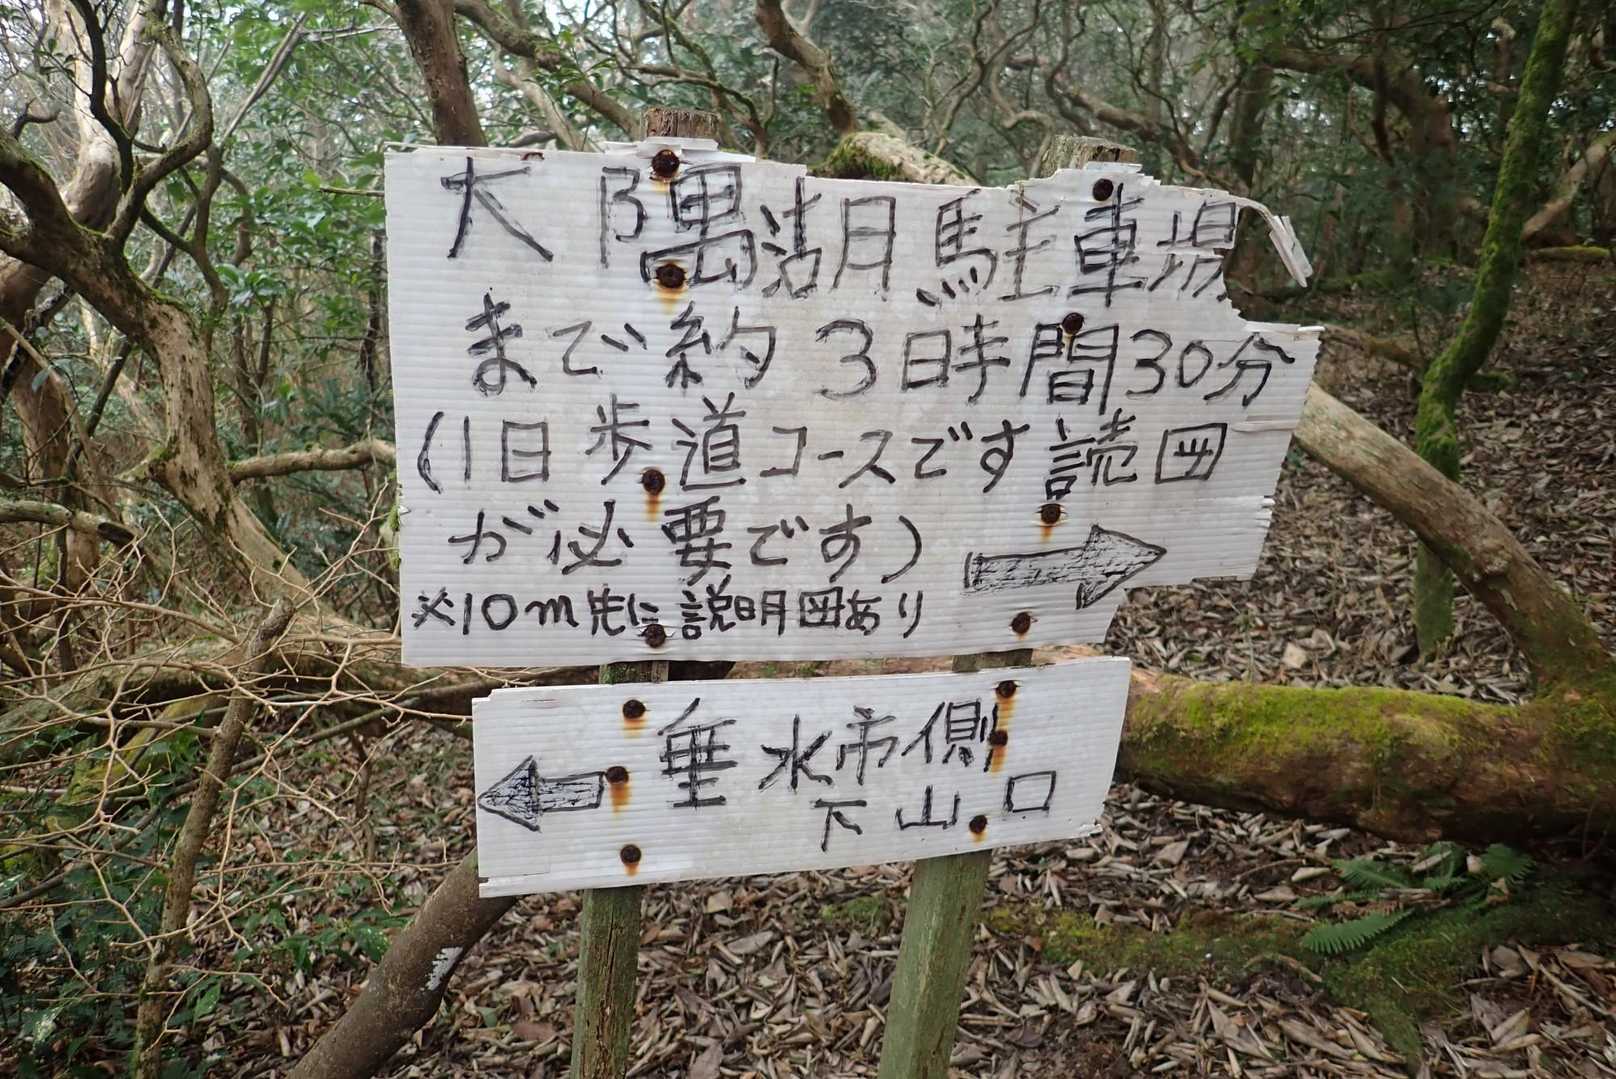 大隅湖駐車場
まで約3時間30分
(1日歩道コースです読図
が必要です)
※10m先に説明図あり
垂水市側
下山口